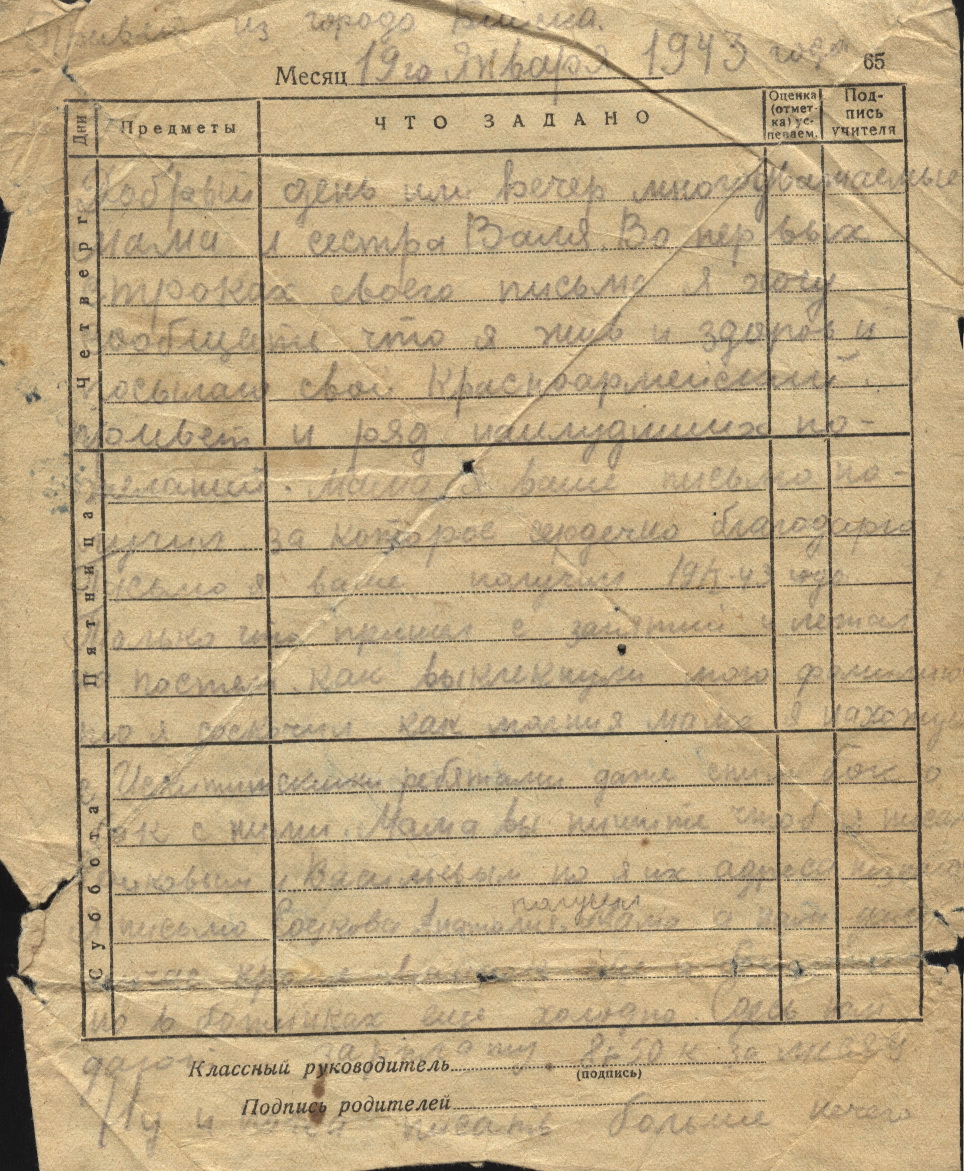 Привет из города
Месяц 19го Января 1943 года 65
Дни Предметы ЧТО ЗАДАНО Оценка (отмет-ка) ус-певаем. Под-пись учителя
Четверг
Добрый день или вечер многоуважаемые
мама и сестра Валя. Во первых
строках своего письма я хочу
сообщить что я жив и здоров и
посылаю свой Красноармейский
привет и ряд наилудших по-
Пятница
желаний. Мама я ваше письмо по-
лучил за которое сердечно благодарю
Письмо я ваше получил 19/I-43 года
только что пришел с занятий и лежал
постели как выкликнули мою фамилию
то я соскочил как молния мама я нахожусь
Суббота
с ребятами даже спим бок о
бок с ними. Мама вы пишите чтоб я писал
и Васильевым но я их адреса
письмо получил мама а нам
сейчас
но в ботинках еще холодно. Здесь нам
дают зарплату 8р 50 к
Классный руководитель
(подпись)
Подпись родителей
Ну и писать больше нечего